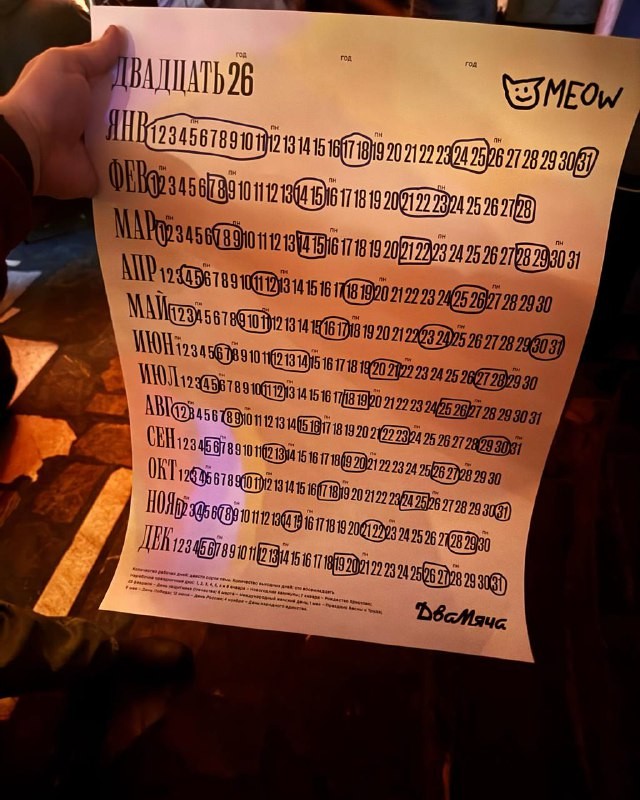 год год год
ДВАДЦАТЬ 26
MEOW
ЯНВ 1 2 3 4 5 6 7 8 9 10 11 12 13 14 15 16 17 18 19 20 21 22 23 24 25 26 27 28 29 30 31
ФЕВ 1 2 3 4 5 6 7 8 9 10 11 12 13 14 15 16 17 18 19 20 21 22 23 24 25 26 27 28
МАР 1 2 3 4 5 6 7 8 9 10 11 12 13 14 15 16 17 18 19 20 21 22 23 24 25 26 27 28 29 30 31
АПР 1 2 3 4 5 6 7 8 9 10 11 12 13 14 15 16 17 18 19 20 21 22 23 24 25 26 27 28 29 30
МАЙ 1 2 3 4 5 6 7 8 9 10 11 12 13 14 15 16 17 18 19 20 21 22 23 24 25 26 27 28 29 30 31
ИЮН 1 2 3 4 5 6 7 8 9 10 11 12 13 14 15 16 17 18 19 20 21 22 23 24 25 26 27 28 29 30
ИЮЛ 1 2 3 4 5 6 7 8 9 10 11 12 13 14 15 16 17 18 19 20 21 22 23 24 25 26 27 28 29 30 31
АВГ 1 2 3 4 5 6 7 8 9 10 11 12 13 14 15 16 17 18 19 20 21 22 23 24 25 26 27 28 29 30 31
СЕН 1 2 3 4 5 6 7 8 9 10 11 12 13 14 15 16 17 18 19 20 21 22 23 24 25 26 27 28 29 30
ОКТ 1 2 3 4 5 6 7 8 9 10 11 12 13 14 15 16 17 18 19 20 21 22 23 24 25 26 27 28 29 30 31
НОЯ 1 2 3 4 5 6 7 8 9 10 11 12 13 14 15 16 17 18 19 20 21 22 23 24 25 26 27 28 29 30
ДЕК 1 2 3 4 5 6 7 8 9 10 11 12 13 14 15 16 17 18 19 20 21 22 23 24 25 26 27 28 29 30 31
Количество рабочих дней: Количество выходных дней:
ДваМяча